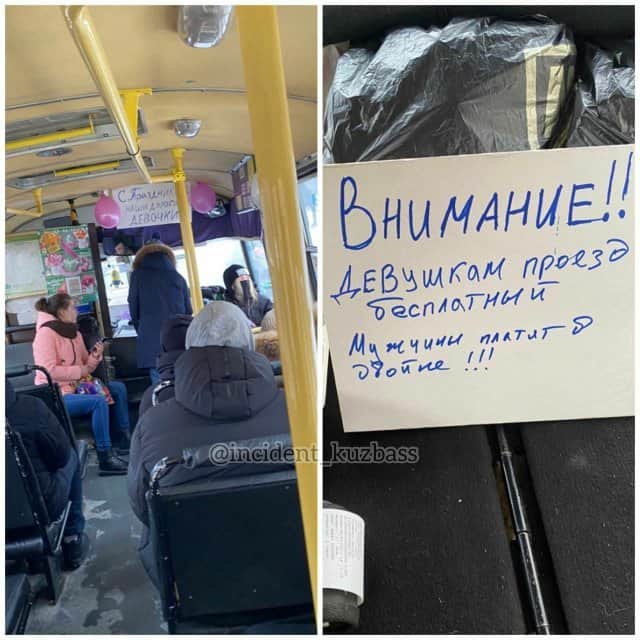 С Праздник
наши дорог
ДЕВОЧКИ
@incident_kuzbass
ВНИМАНИЕ!!
ДЕВУШКАМ проезд
бесплатный
Мужчины платят в
двойне !!!